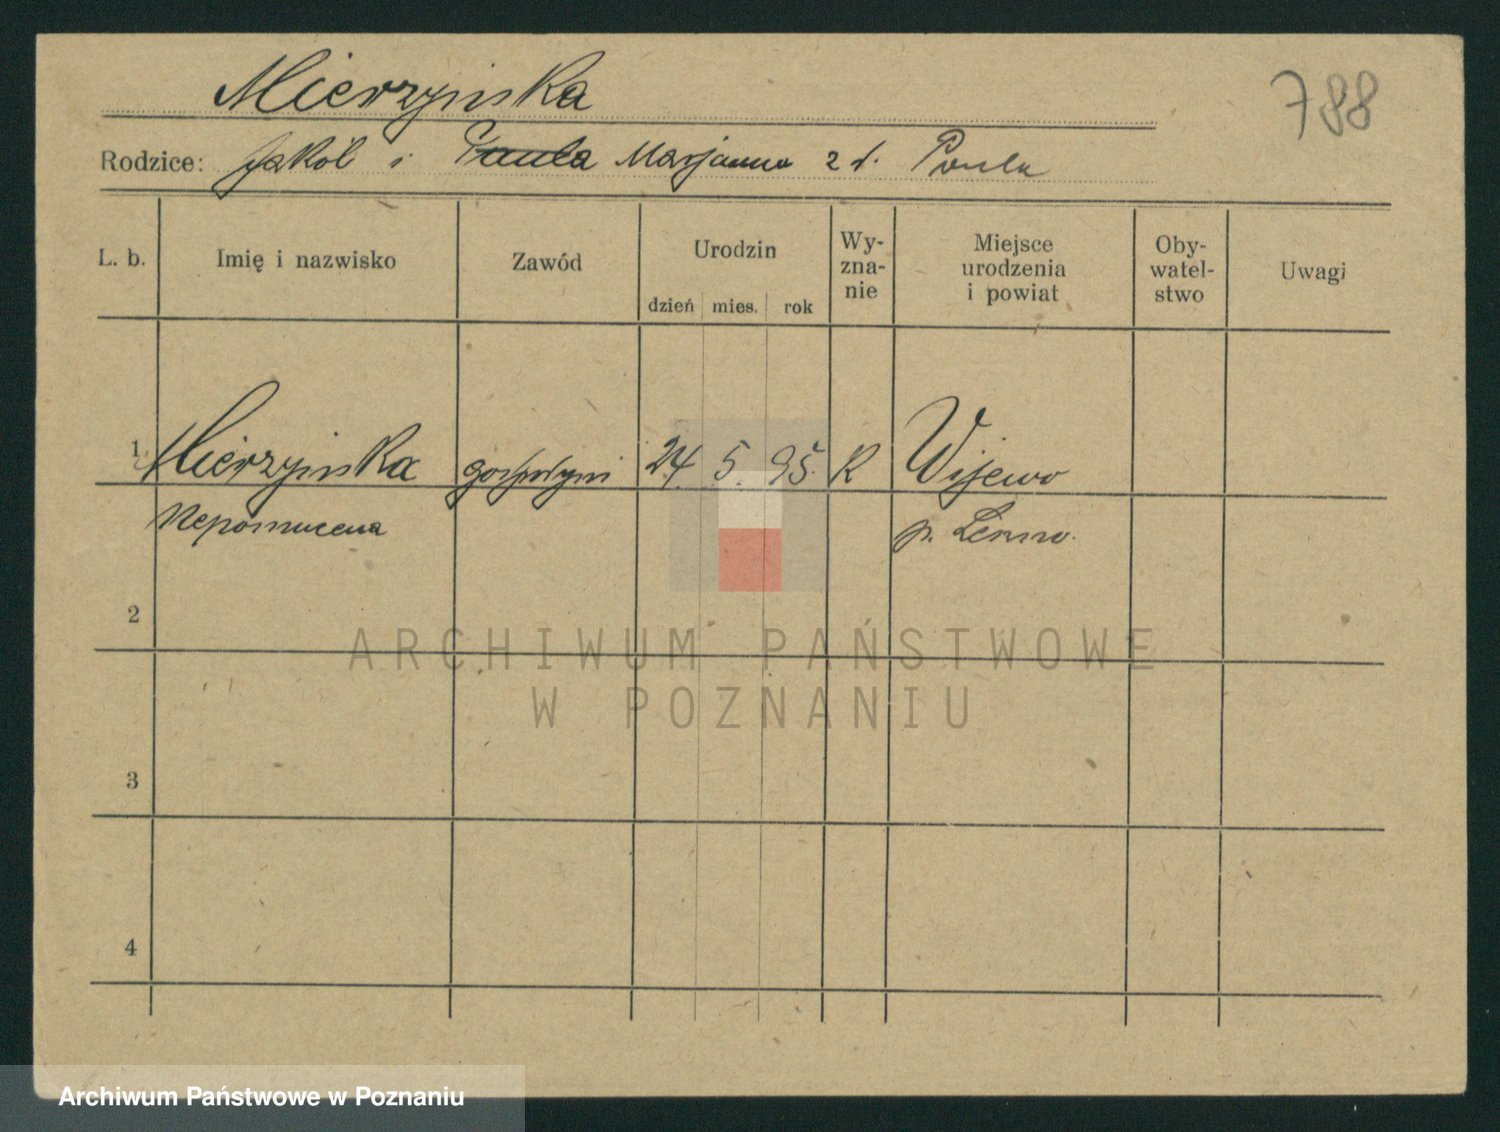 Mierzyńska
788
Rodzice: Jakób i Paula Marjanna z d. Paula
L. b. Imię i nazwisko Zawód Urodzin dzień mies. rok Wy-zna-nie Miejsce urodzenia i powiat Oby-watel-stwo Uwagi
1 Mierzyńska gospodyni 24 5. 95. R Wijewo
Nepomucena p. Leszno.
2
3
4
ARCHIWUM PAŃSTWOWE
W POZNANIU
Archiwum Państwowe w Poznaniu